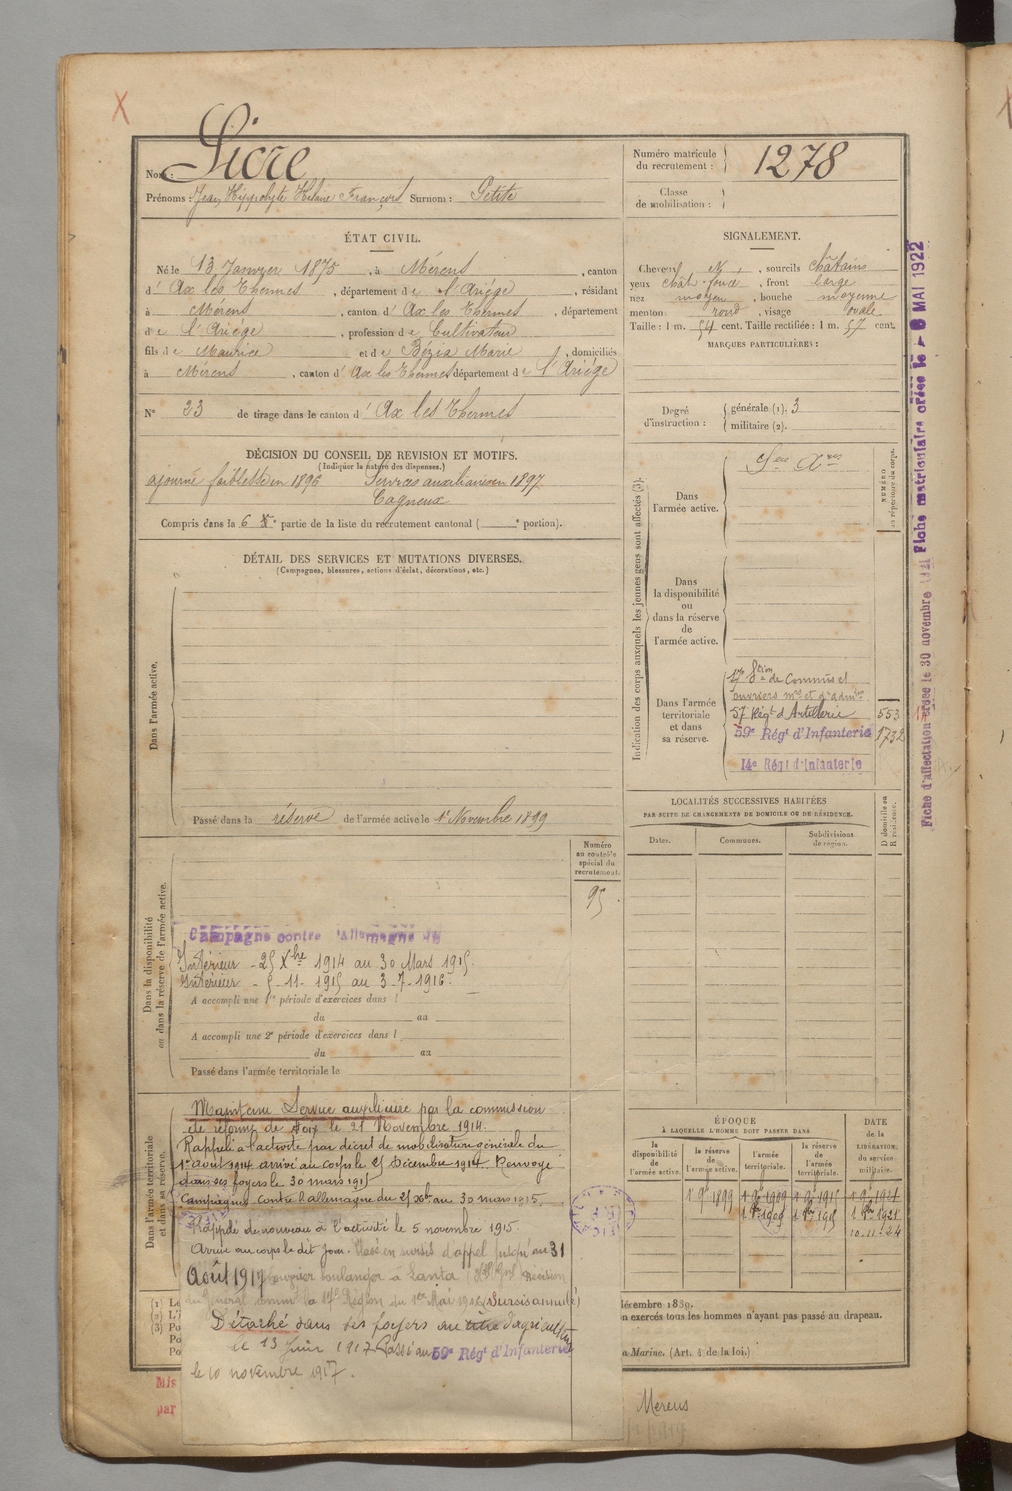 X
Nom : Sicre
Prénoms : Jean Hippolyte Hilaire François Surnom : Petite
Numéro matricule du recrutement : 1278
Classe de mobilisation :
ÉTAT CIVIL.
Né le 13 Janvier 1875, à Mérens, canton
d' Ax les Thermes, département de l'Ariège, résidant
à Mérens, canton d' Ax les Thermes, département
de l'Ariège, profession de Cultivateur
fils de Maurice et de Bézia Marie, domiciliés
à Mérens, canton d' Ax les Thermes département de l'Ariège
N° 23 de tirage dans le canton d' Ax les Thermes
SIGNALEMENT.
Cheveux et, sourcils châtains
yeux chât. foncé, front large
nez moyen, bouche moyenne
menton rond, visage ovale
Taille : 1 m. 54 cent. Taille rectifiée : 1 m. 57 cent.
MARQUES PARTICULIÈRES :
Degré d'instruction : générale (1). 3
militaire (2).
DÉCISION DU CONSEIL DE REVISION ET MOTIFS.
(Indiquer la nature des dispenses.)
ajourné faiblesse en 1896 Services auxiliaires en 1897
Cagneux
Compris dans la 6e partie de la liste du recrutement cantonal ( e portion).
DÉTAIL DES SERVICES ET MUTATIONS DIVERSES.
(Campagnes, blessures, actions d'éclat, décorations, etc.)
Dans l'armée active.
Passé dans la réserve de l'armée active le 1er Novembre 1899
Indication des corps auxquels les jeunes gens sont affectés (3).
NUMÉRO au répertoire du corps.
Dans l'armée active.
Dans la disponibilité ou dans la réserve de l'armée active.
Dans l'armée territoriale et dans sa réserve.
17e Son de Commis et
ouvriers mres et d'admon
57 Régt d'Artillerie 553
59e Régt d'Infanterie 1732
14e Régt d'Infanterie
LOCALITÉS SUCCESSIVES HABITÉES
PAR SUITE DE CHANGEMENTS DE DOMICILE OU DE RÉSIDENCE.
Dates. Communes. Subdivisions de région. D domicile ou R résidence.
Numéro au contrôle spécial du recrutement.
95
Dans la disponibilité ou dans la réserve de l'armée active.
Campagne contre l'Allemagne
Intérieur - 25 Xbre 1914 au 30 Mars 1915.
Intérieur - 5-11-1915 au 3-7-1916.
A accompli une 1re période d'exercices dans l
du au
A accompli une 2e période d'exercices dans l
du au
Passé dans l'armée territoriale le
Dans l'armée territoriale et dans sa réserve.
Maintenu Service auxiliaire par la commission
de réforme de Foix le 21 Novembre 1914.
Rappelé à l'activité par décret de mobilisation générale du
1er août 1914 arrivé au corps le 25 Décembre 1914. Renvoyé
dans ses foyers le 30 mars 1915
Campagnes contre l'allemagne du 25 Xbre au 30 mars 1915.
Rappelé de nouveau à l'activité le 5 novembre 1915.
Arrivé au corps le dit jour. Classé en sursis d'appel jusqu'au 31
Août 1917 boulanger à Lanta (Hte Gne) Décision
du Général commt la 17e Région du 1er Mai 1916 (Sursis annulé)
Détaché dans ses foyers au titre d'agriculteur
le 13 Juin 1917. Passé au 59e Régt d'Infanterie
le 10 novembre 1917.
ÉPOQUE
À LAQUELLE L'HOMME DOIT PASSER DANS
la disponibilité de l'armée active. la réserve de l'armée active. l'armée territoriale. la réserve de l'armée territoriale.
DATE de la LIBÉRATION du service militaire.
1 9bre 1899 1 9bre 1909 1 9bre 1915 1 9bre 1921
10-11-24
(1)
(2)
(3)
décembre 1889.
n exercés tous les hommes n'ayant pas passé au drapeau.
a Marine. (Art. 4 de la loi.)
Mis
par
Merens
Fiche d'affectation créée le 30 novembre 1921 Fiche matriculaire créée le - 8 MAI 1922